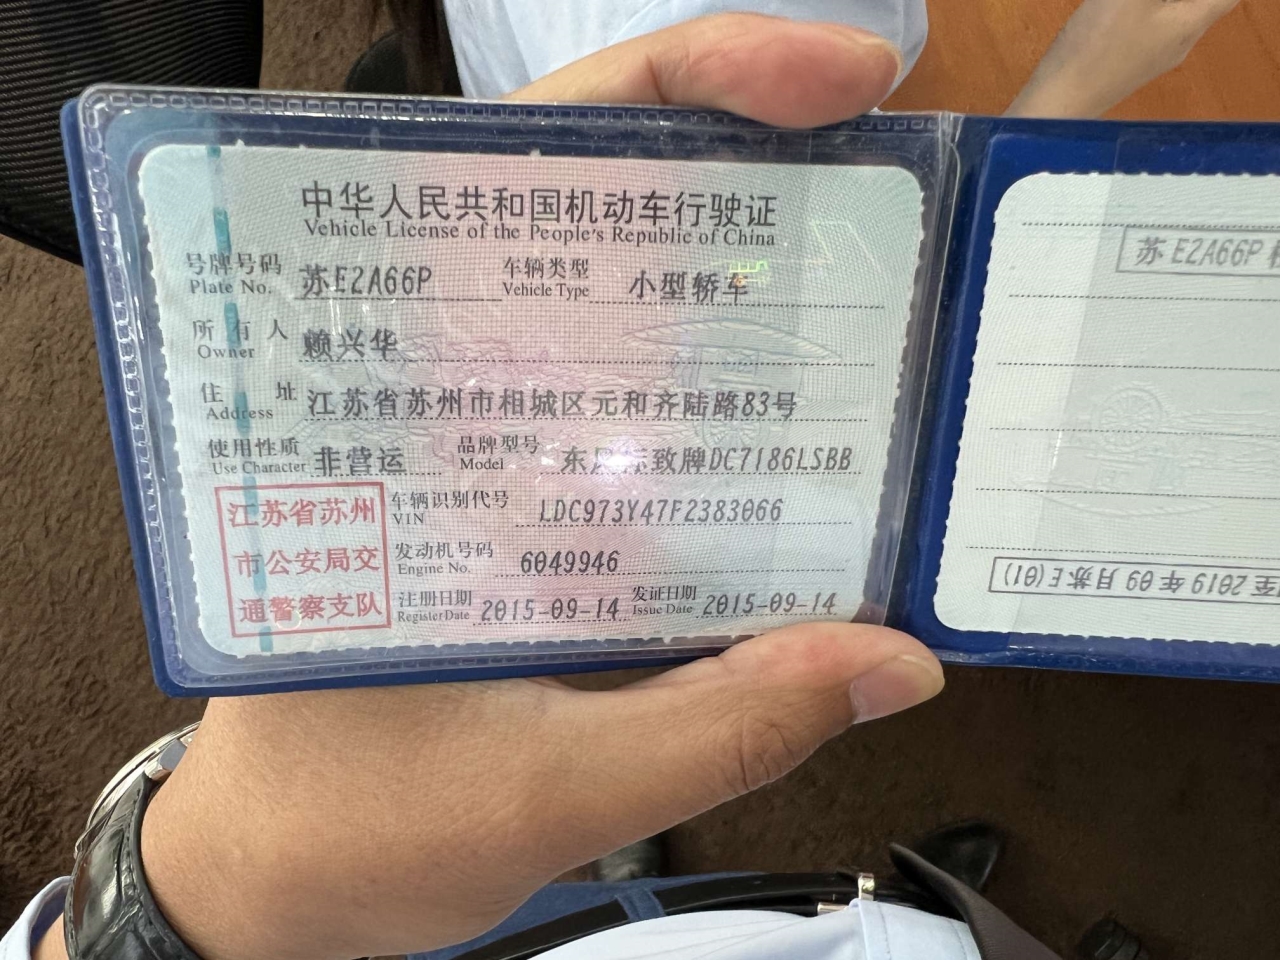 中华人民共和国机动车行驶证
Vehicle License of the People's Republic of China
号牌号码 苏E2A66P 车辆类型 小型轿车
Plate No. Vehicle Type
所有人 赖兴华
Owner
住址 江苏省苏州市相城区元和齐陆路83号
Address
使用性质 非营运 品牌型号 东风标致牌DC7186LSBB
Use Character Model
江苏省苏州
市公安局交
通警察支队
车辆识别代号 LDC973Y47F2383066
VIN
发动机号码 6049946
Engine No.
注册日期 2015-09-14 发证日期 2015-09-14
Register Date Issue Date
苏E2A66P
至2019年09月苏E(01)